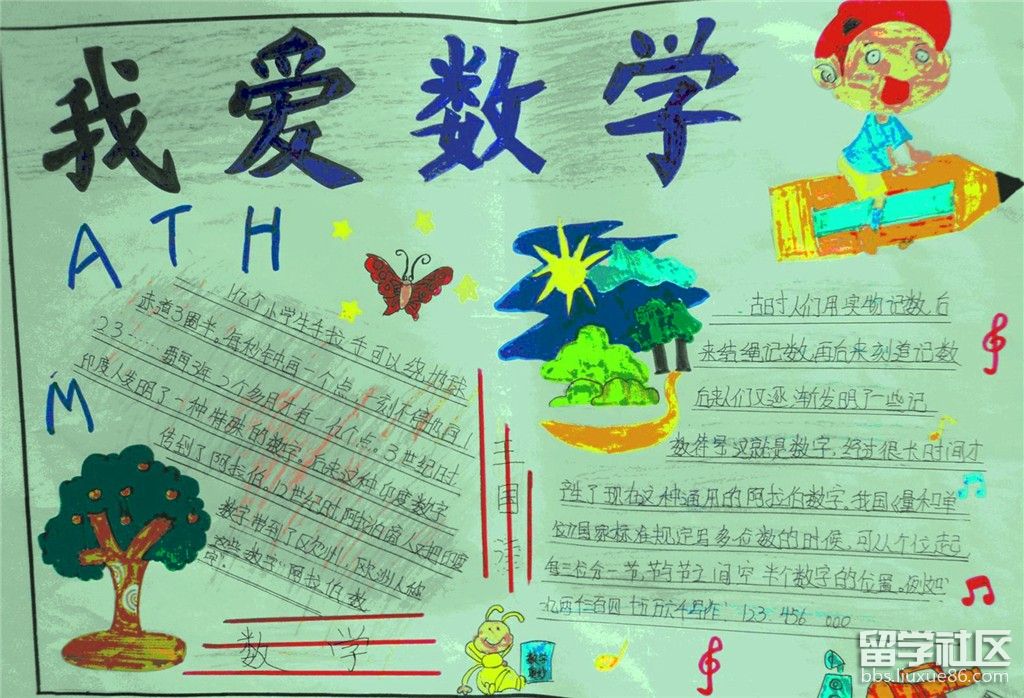 我爱数学
MATH
1亿个小学生手拉手可以绕地球
赤道3圈半。每秒钟画一个点,一刻不停地画1
23……要用3年2个多月才有一亿个点。3世纪时
印度人发明了一种特殊的数字,后来这种印度数字
传到了阿拉伯,12世纪时,阿拉伯商人又把印度
数字带到了欧洲,欧洲人称
这些数字"阿拉伯数
字"。
数 学
王
国
古时人们用实物记数,后
来结绳记数,再后来刻道记数
后来人们又逐渐发明了一些记
数符号这就是数字,经过很长时间才
产生了现在这种通用的阿拉伯数字。我国《量和单
位》国家标准规定写多位数的时候,可从个位起
每三位分一节,节与节之间空半个数字的位置。例如
123 456 000
数学
留学社区
bbs.liuxue86.com